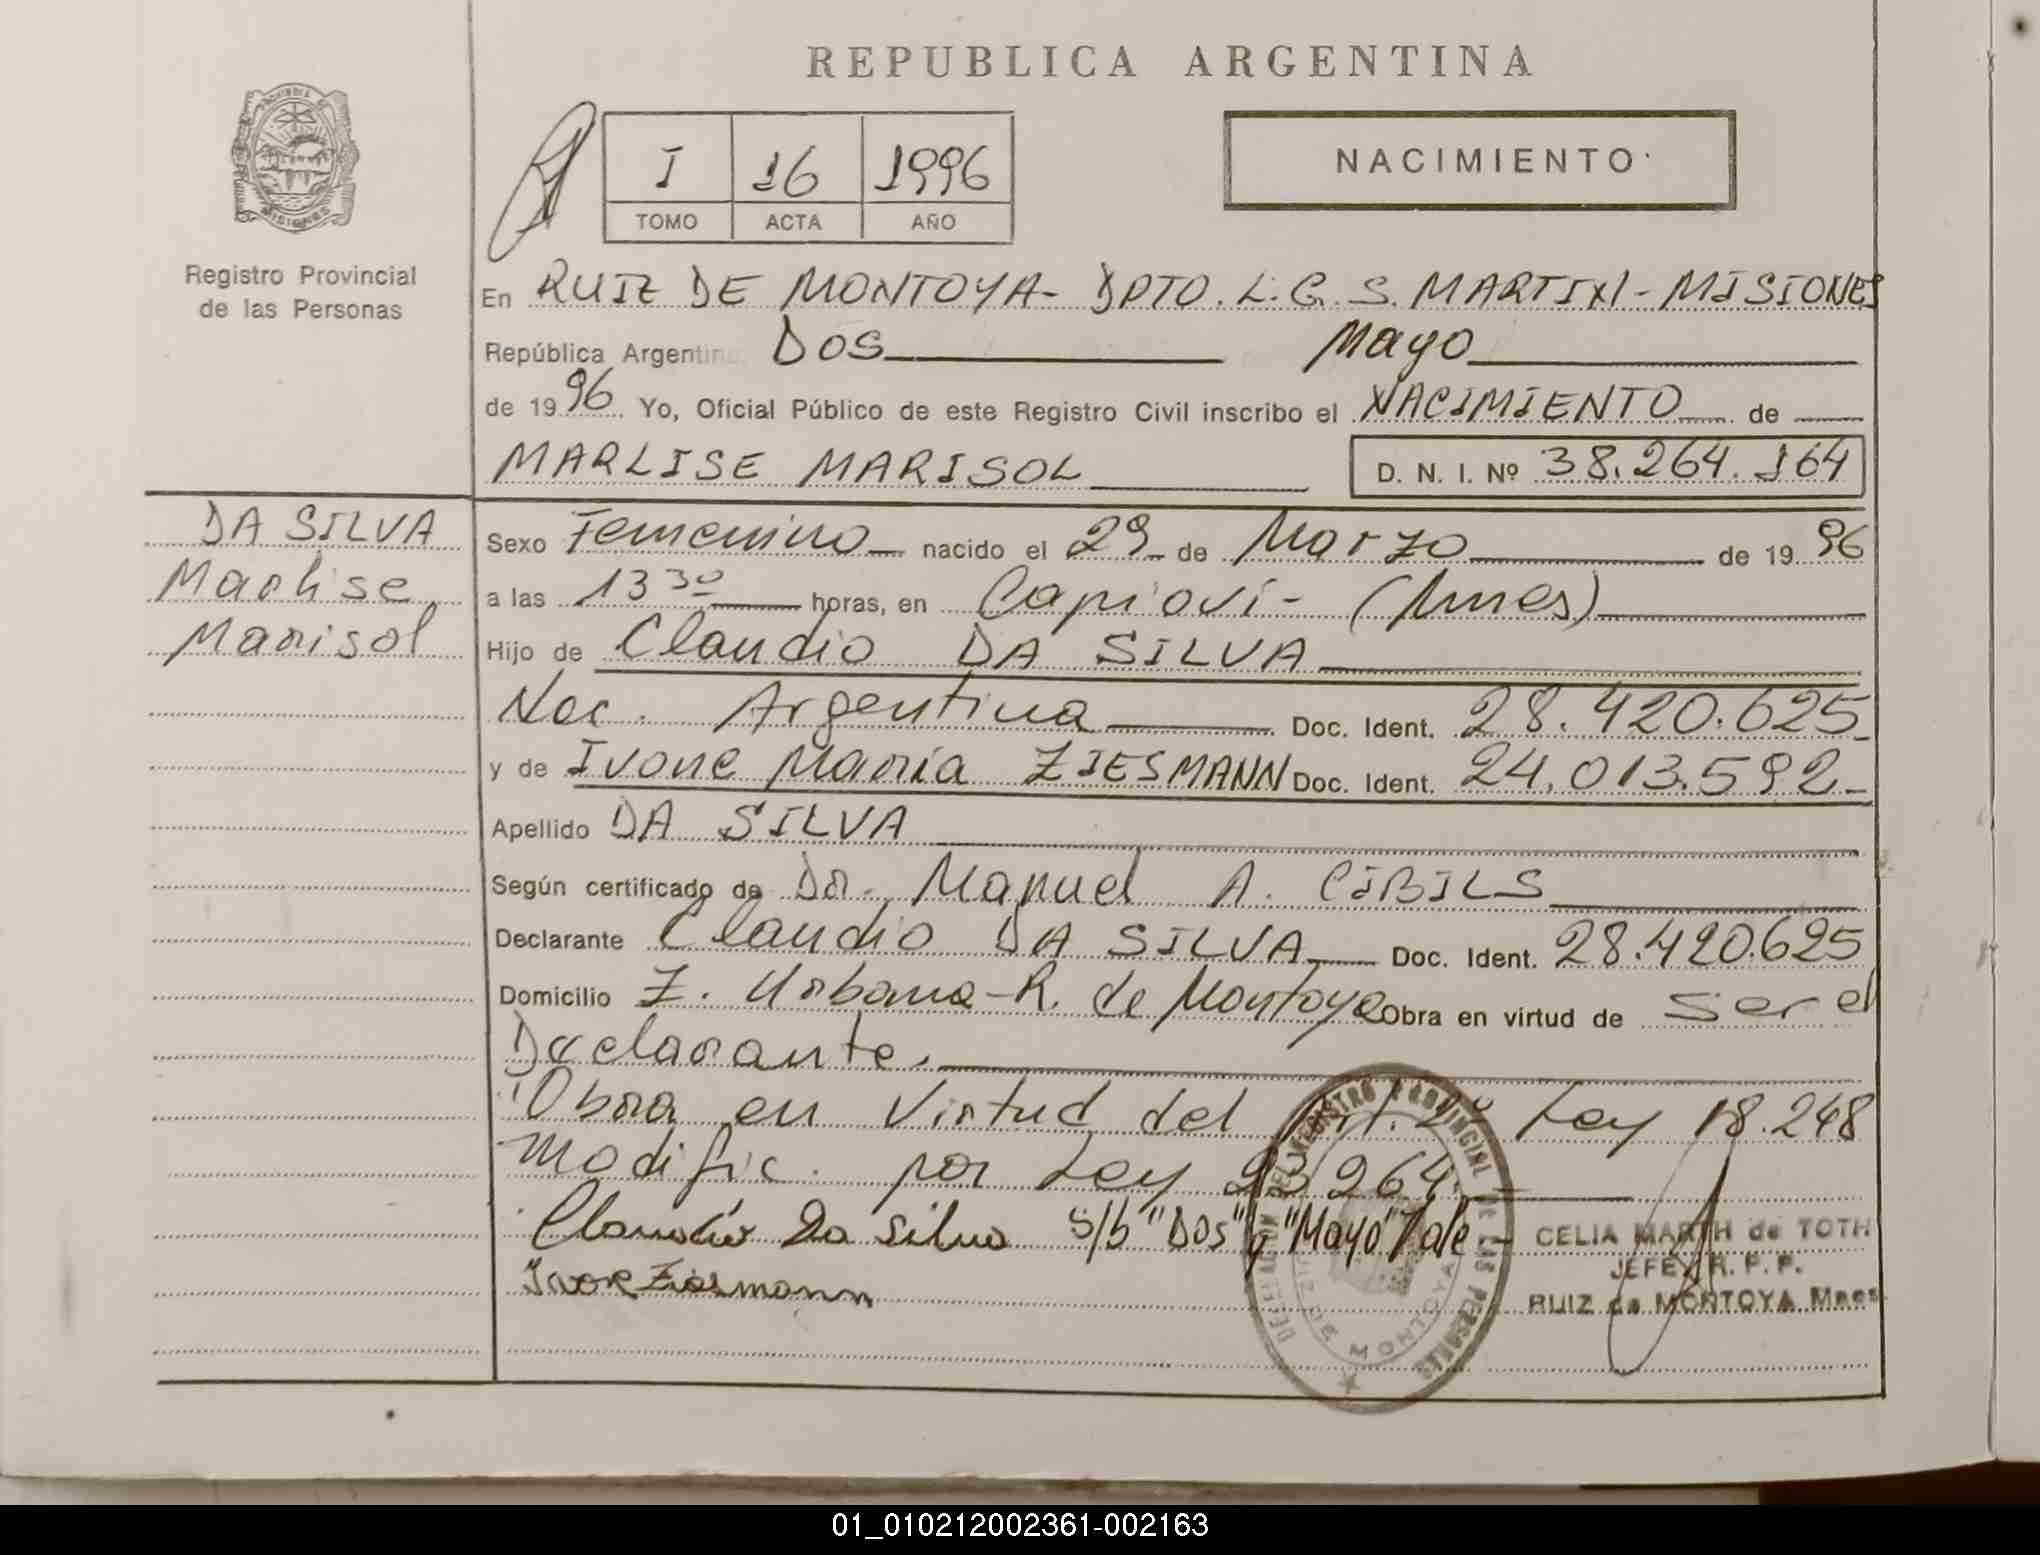 REPUBLICA ARGENTINA
PROVINCIA DE
MISIONES
Registro Provincial
de las Personas
I 16 1996
TOMO ACTA AÑO
NACIMIENTO
En RUIZ DE MONTOYA- DPTO. L.G.S. MARTIN - MISIONES
República Argentina Dos Mayo
de 1996 Yo, Oficial Público de este Registro Civil inscribo el NACIMIENTO de
MARLISE MARISOL D. N. I. Nº 38.264.164
DA SILVA
Marlise
Marisol
Sexo Femenino nacido el 29 de Marzo de 1996
a las 13 30 horas, en Capioví- (Mnes)
Hijo de Claudio DA SILVA
Nac. Argentina Doc. Ident. 28.420.625
y de Ivone María ZIESMANN Doc. Ident. 24.013.592
Apellido DA SILVA
Según certificado de Dr. Manuel A. CIBILS
Declarante Claudio DA SILVA Doc. Ident. 28.420.625
Domicilio Z. Urbana-R. de Montoya Obra en virtud de ser el
Declarante.
Obra en virtud del Art. Ley 18.248
Modific. por Ley 23264.
Claudio Da Silva s/b "Dos" y "Mayo" Vale
Ivone Ziesmann
DELEGACION DEL REGISTRO PROVINCIAL DE LAS PERSONAS
RUIZ DE MONTOYA
CELIA MARTH de TOTH
JEFE R. P. P.
RUIZ de MONTOYA Mnes
01_010212002361-002163